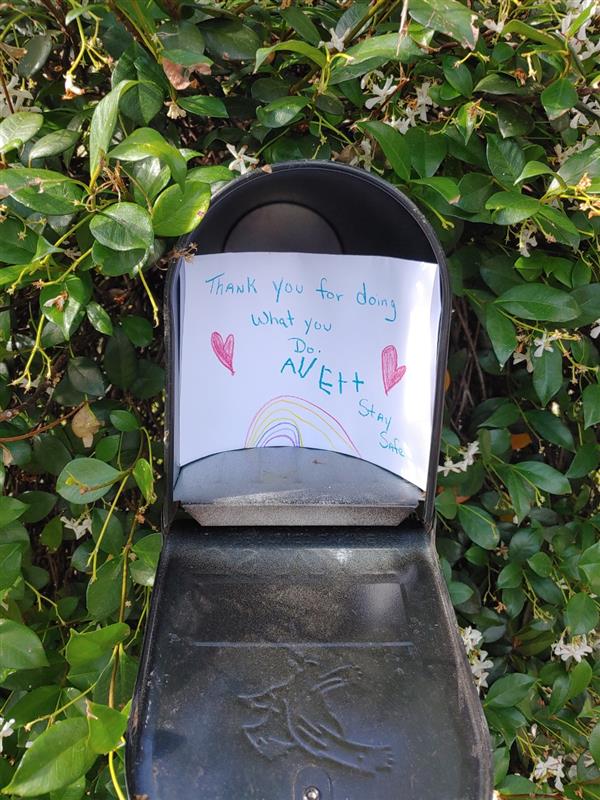 Thank you for doing
what you
Do.
AVEtt
Stay
Safe